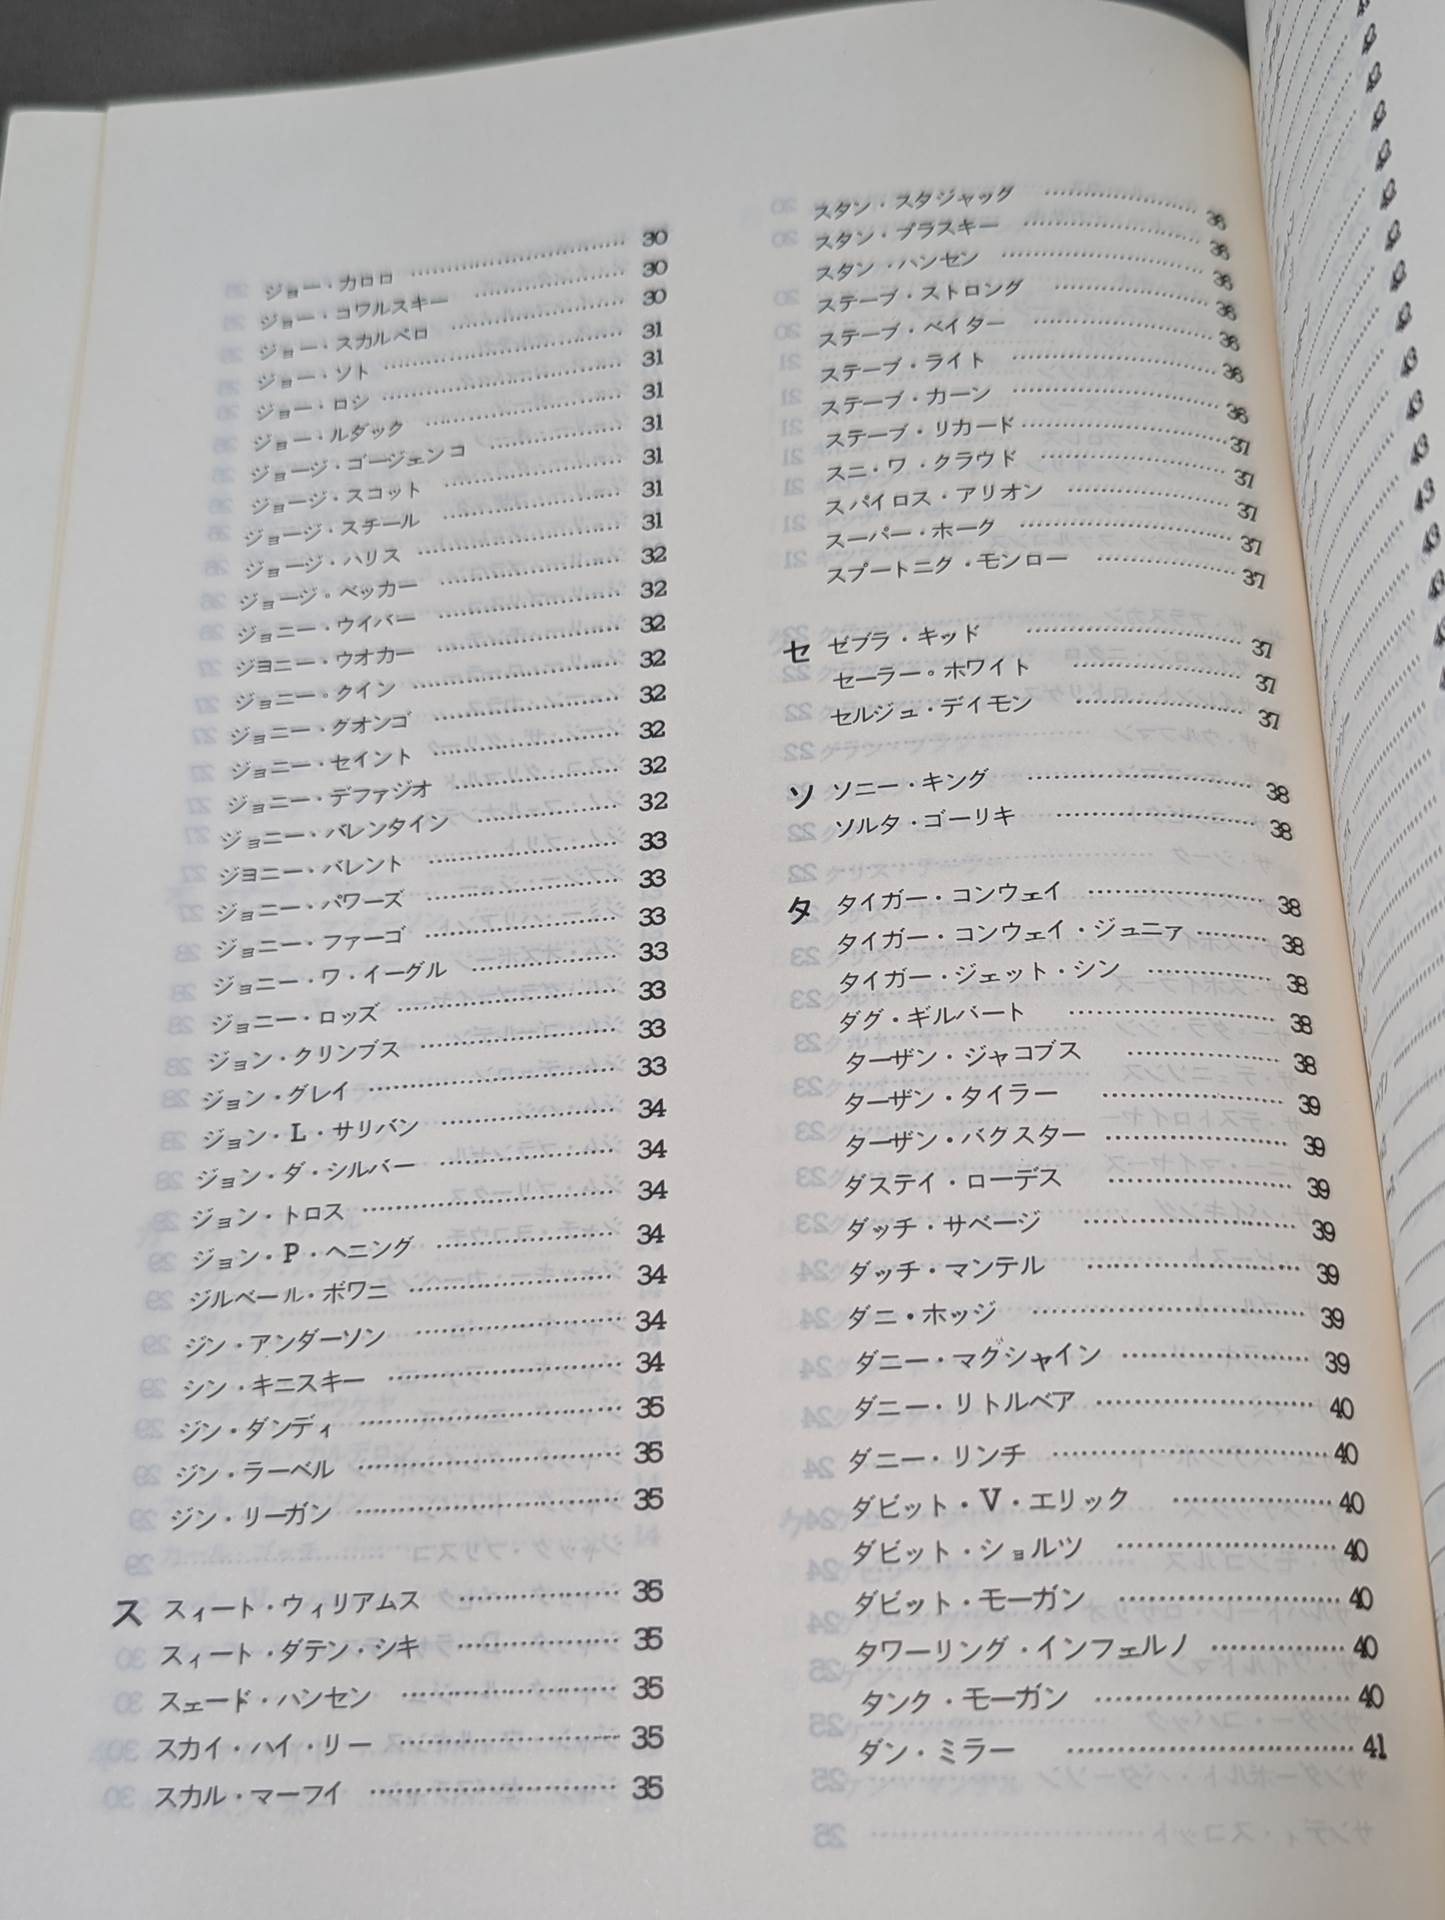 ジョー・カロロ ……………… 30
ジョー・コワルスキー ……………… 30
ジョー・スカルペロ ……………… 30
ジョー・ソト ……………… 31
ジョー・ロシ ……………… 31
ジョー・ルダック ……………… 31
ジョージ・ゴージェンコ ……………… 31
ジョージ・スコット ……………… 31
ジョージ・スチール ……………… 31
ジョージ・ハリス ……………… 31
ジョージ・ベッカー ……………… 32
ジョニー・ウイバー ……………… 32
ジョニー・ウオカー ……………… 32
ジョニー・クイン ……………… 32
ジョニー・グオンゴ ……………… 32
ジョニー・セイント ……………… 32
ジョニー・デファジオ ……………… 32
ジョニー・バレンタイン ……………… 32
ジヨニー・バレント ……………… 33
ジョニー・パワーズ ……………… 33
ジョニー・ファーゴ ……………… 33
ジョニー・ワ・イーグル ……………… 33
ジョニー・ロッズ ……………… 33
ジョン・クリンブス ……………… 33
ジョン・グレイ ……………… 33
ジョン・L・サリバン ……………… 34
ジョン・ダ・シルバー ……………… 34
ジョン・トロス ……………… 34
ジョン・P・ヘニング ……………… 34
ジルベール・ボワニ ……………… 34
ジン・アンダーソン ……………… 34
シン・キニスキー ……………… 34
ジン・ダンディ ……………… 35
ジン・ラーベル ……………… 35
ジン・リーガン ……………… 35
ス スィート・ウィリアムス ……………… 35
スィート・ダテン・シキ ……………… 35
スェード・ハンセン ……………… 35
スカイ・ハイ・リー ……………… 35
スカル・マーフイ ……………… 35
スタン・スタジャック ……………… 36
スタン・プラスキー ……………… 36
スタン・ハンセン ……………… 36
ステーブ・ストロング ……………… 36
ステーブ・ベイター ……………… 36
ステーブ・ライト ……………… 36
ステーブ・カーン ……………… 36
ステーブ・リカード ……………… 37
スニ・ワ・クラウド ……………… 37
スパイロス・アリオン ……………… 37
スーパー・ホーク ……………… 37
スプートニク・モンロー ……………… 37
セ ゼブラ・キッド ……………… 37
セーラー。ホワイト ……………… 37
セルジュ・デイモン ……………… 37
ソ ソニー・キング ……………… 38
ソルタ・ゴーリキ ……………… 38
タ タイガー・コンウェイ ……………… 38
タイガー・コンウェイ・ジュニァ ……… 38
タイガー・ジェット・シン ……………… 38
ダグ・ギルバート ……………… 38
ターザン・ジャコブス ……………… 38
ターザン・タイラー ……………… 39
ターザン・バクスター ……………… 39
ダステイ・ローデス ……………… 39
ダッチ・サベージ ……………… 39
ダッチ・マンテル ……………… 39
ダニ・ホッジ ……………… 39
ダニー・マグシャイン ……………… 39
ダニー・リトルベア ……………… 40
ダニー・リンチ ……………… 40
ダビット・V・エリック ……………… 40
ダビット・ショルツ ……………… 40
ダビット・モーガン ……………… 40
タワーリング・インフェルノ ……………… 40
タンク・モーガン ……………… 40
ダン・ミラー ……………… 41